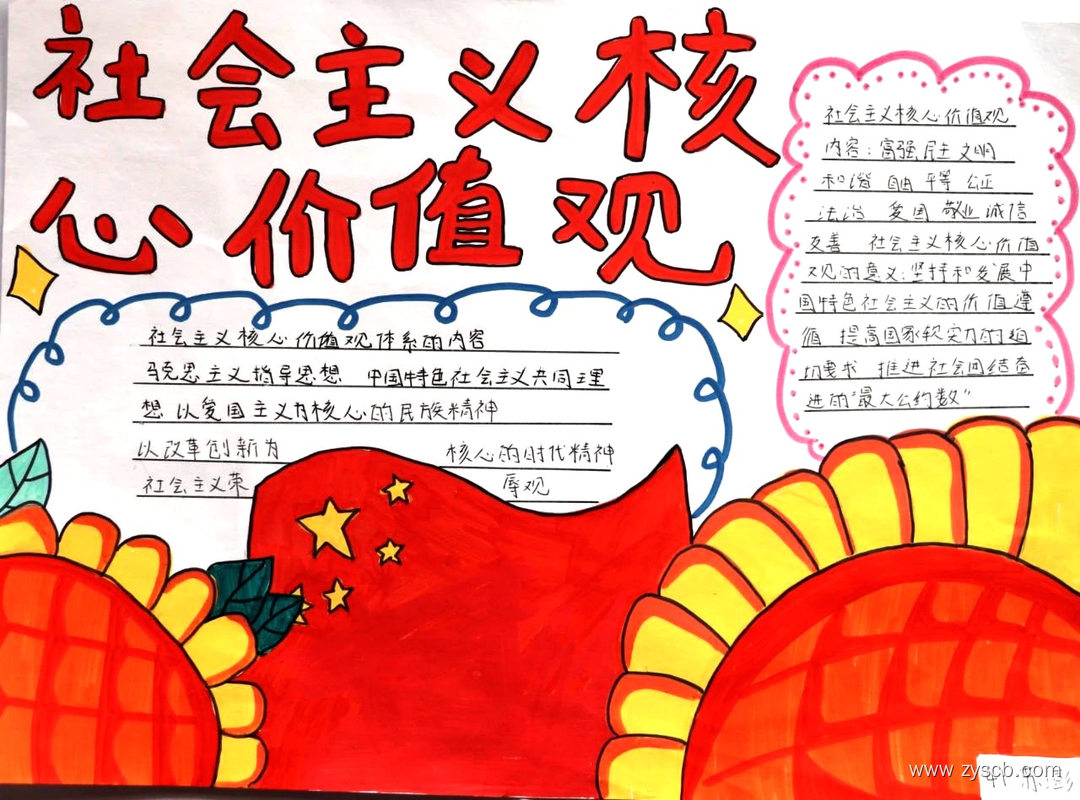 社会主义核
心价值观
社会主义核心价值观体系的内容
马克思主义指导思想 中国特色社会主义共同理
想 以爱国主义为核心的民族精神
以改革创新为 核心的时代精神
社会主义荣 辱观
社会主义核心价值观
内容：富强 民主 文明
和谐 自由 平等 公正
法治 爱国 敬业 诚信
友善 社会主义核心价值
观的意义：坚持和发展中
国特色社会主义的价值遵
循 提高国家软实力的迫
切要求 推进社会团结奋
进的"最大公约数"
www.zyscb.com